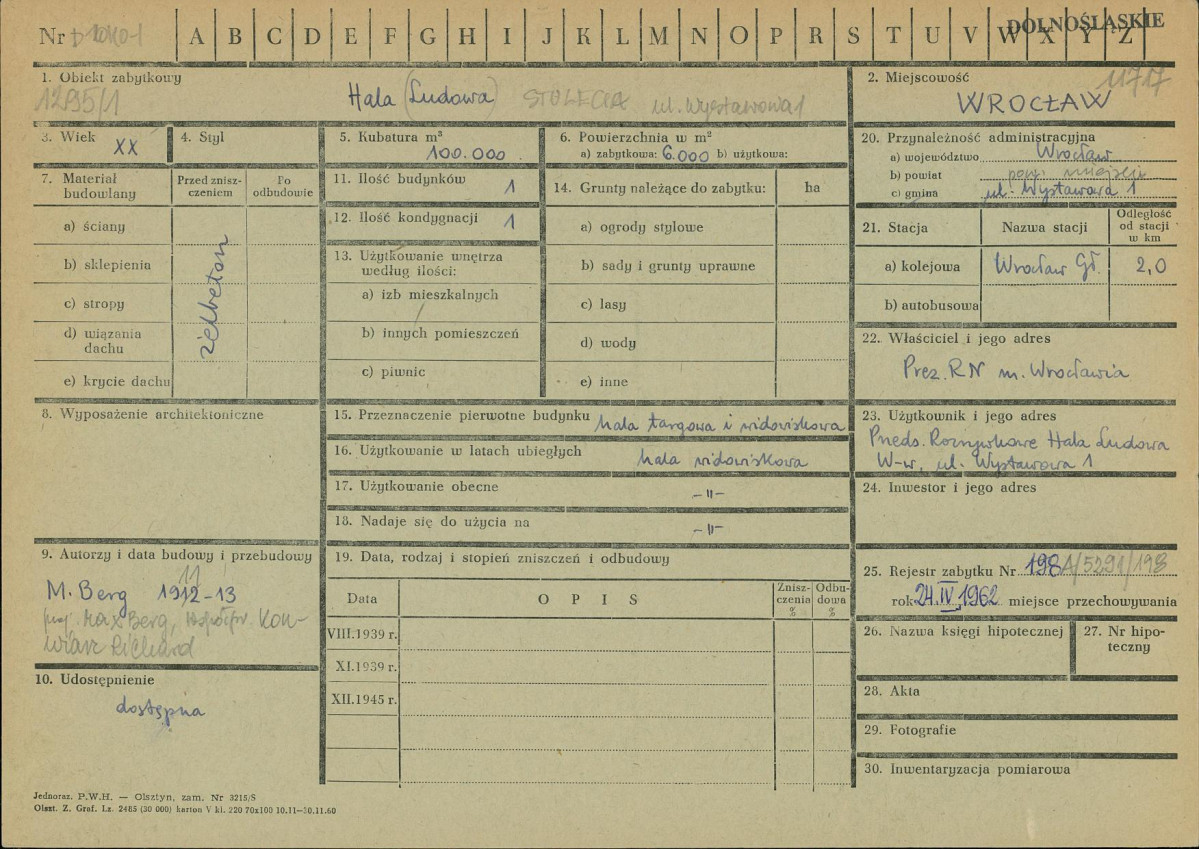 Nr
A B C D E F G H I J K L M N O P R S T U V W X Y Z
DOLNOŚLĄSKIE
1. Obiekt zabytkowy
1295/1
Hala (Ludowa) STULECIA ul. Wystawowa 1
2. Miejscowość
11717
WROCŁAW
3. Wiek XX
4. Styl
5. Kubatura m³
100.000
6. Powierzchnia w m²
a) zabytkowa: 6.000 b) użytkowa:
20. Przynależność administracyjna
a) województwo Wrocław
b) powiat miejski
c) gmina ul. Wystawowa 1
7. Materiał budowlany
Przed zniszczeniem
Po odbudowie
a) ściany
b) sklepienia
c) stropy
d) wiązania dachu
e) krycie dachu
żelbeton
11. Ilość budynków 1
12. Ilość kondygnacji 1
13. Użytkowanie wnętrza
według ilości:
a) izb mieszkalnych
b) innych pomieszczeń
c) piwnic
14. Grunty należące do zabytku: ha
a) ogrody stylowe
b) sady i grunty uprawne
c) lasy
d) wody
e) inne
21. Stacja
Nazwa stacji
Odległość
od stacji
w km
a) kolejowa Wrocław Gł. 2,0
b) autobusowa
22. Właściciel i jego adres
Prez. RN m. Wrocławia
8. Wyposażenie architektoniczne
15. Przeznaczenie pierwotne budynku hala targowa i widowiskowa
16. Użytkowanie w latach ubiegłych hala widowiskowa
17. Użytkowanie obecne -"-
18. Nadaje się do użycia na -"-
23. Użytkownik i jego adres
Przeds. Rozrywkowe Hala Ludowa
W-w, ul. Wystawowa 1
24. Inwestor i jego adres
9. Autorzy i data budowy i przebudowy
11
M. Berg 1912-13
proj. Max Berg, współpr. Kon-
wiarz Richard
10. Udostępnienie
dostępna
19. Data, rodzaj i stopień zniszczeń i odbudowy
Data
OPIS
Zniszczenia %
Odbudowa %
VIII.1939 r.
XI.1939 r.
XII.1945 r.
25. Rejestr zabytku Nr 198 A/5291/198
rok 24.IV.1962 miejsce przechowywania
26. Nazwa księgi hipotecznej
27. Nr hipoteczny
28. Akta
29. Fotografie
30. Inwentaryzacja pomiarowa
Jednoraz. P.W.H. — Olsztyn, zam. Nr 3215/S
Olszt. Z. Graf. Lz. 2485 (30 000) karton V kl. 220 70x100 10.11—30.11.60